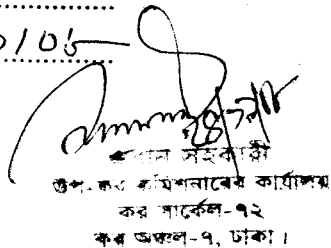 ০/০৮
প্রধান সহকারী
উপ-কর কমিশনারের কার্যালয়
কর সার্কেল-৭২
কর অঞ্চল-৭, ঢাকা।